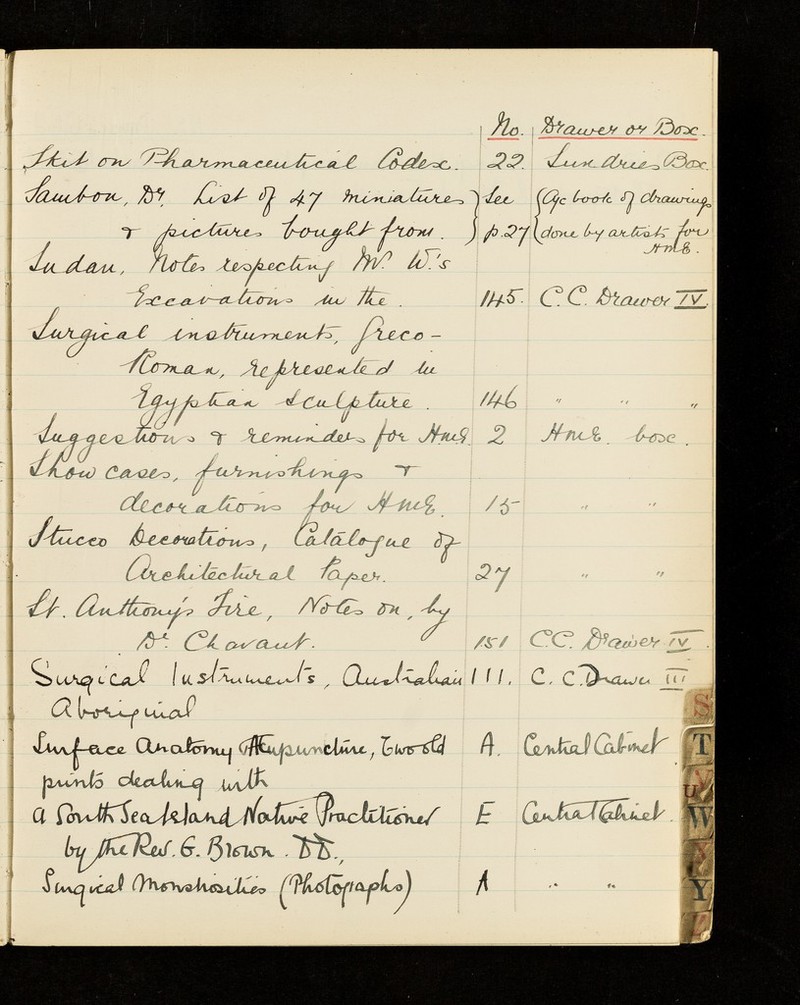 No. Drawer or Box.
Skit on Pharmaceutical Codex. 22. Sundries Box.
Sambon, Dr. List of 47 miniatures } See { Age book of drawings
& pictures bought from. } p.27 { done by artists for
H.M.E.
Sudan, Notes respecting Mr. W.'s
Excavations in the. 145. C.C. Drawer IV.
Surgical instruments, Greco-
Roman, represented in
Egyptian sculpture. 146 " " "
Suggestions & reminders for H.M.E. 2 H.M.E. box.
Show cases, furnishings &
decorations for H.M.E. 15 " "
Stucco Decorations, Catalogue of
Architectural Paper. 27 " "
St. Anthony's Fire, Notes on, by
Dr. Chavant. 151 C.C. Drawer IV.
Surgical Instruments, Australian 111. C.C. Drawer III
Aboriginal
Surface Anatomy & Acupuncture, Two old A. Central Cabinet
prints dealing with
A South Sea Island Native Practitioner E Central Cabinet.
by the Rev. G. Brown. D.D.,
Surgical Monstrosities (Photographs) A " "
S
T
U V
W
X
Y
Z